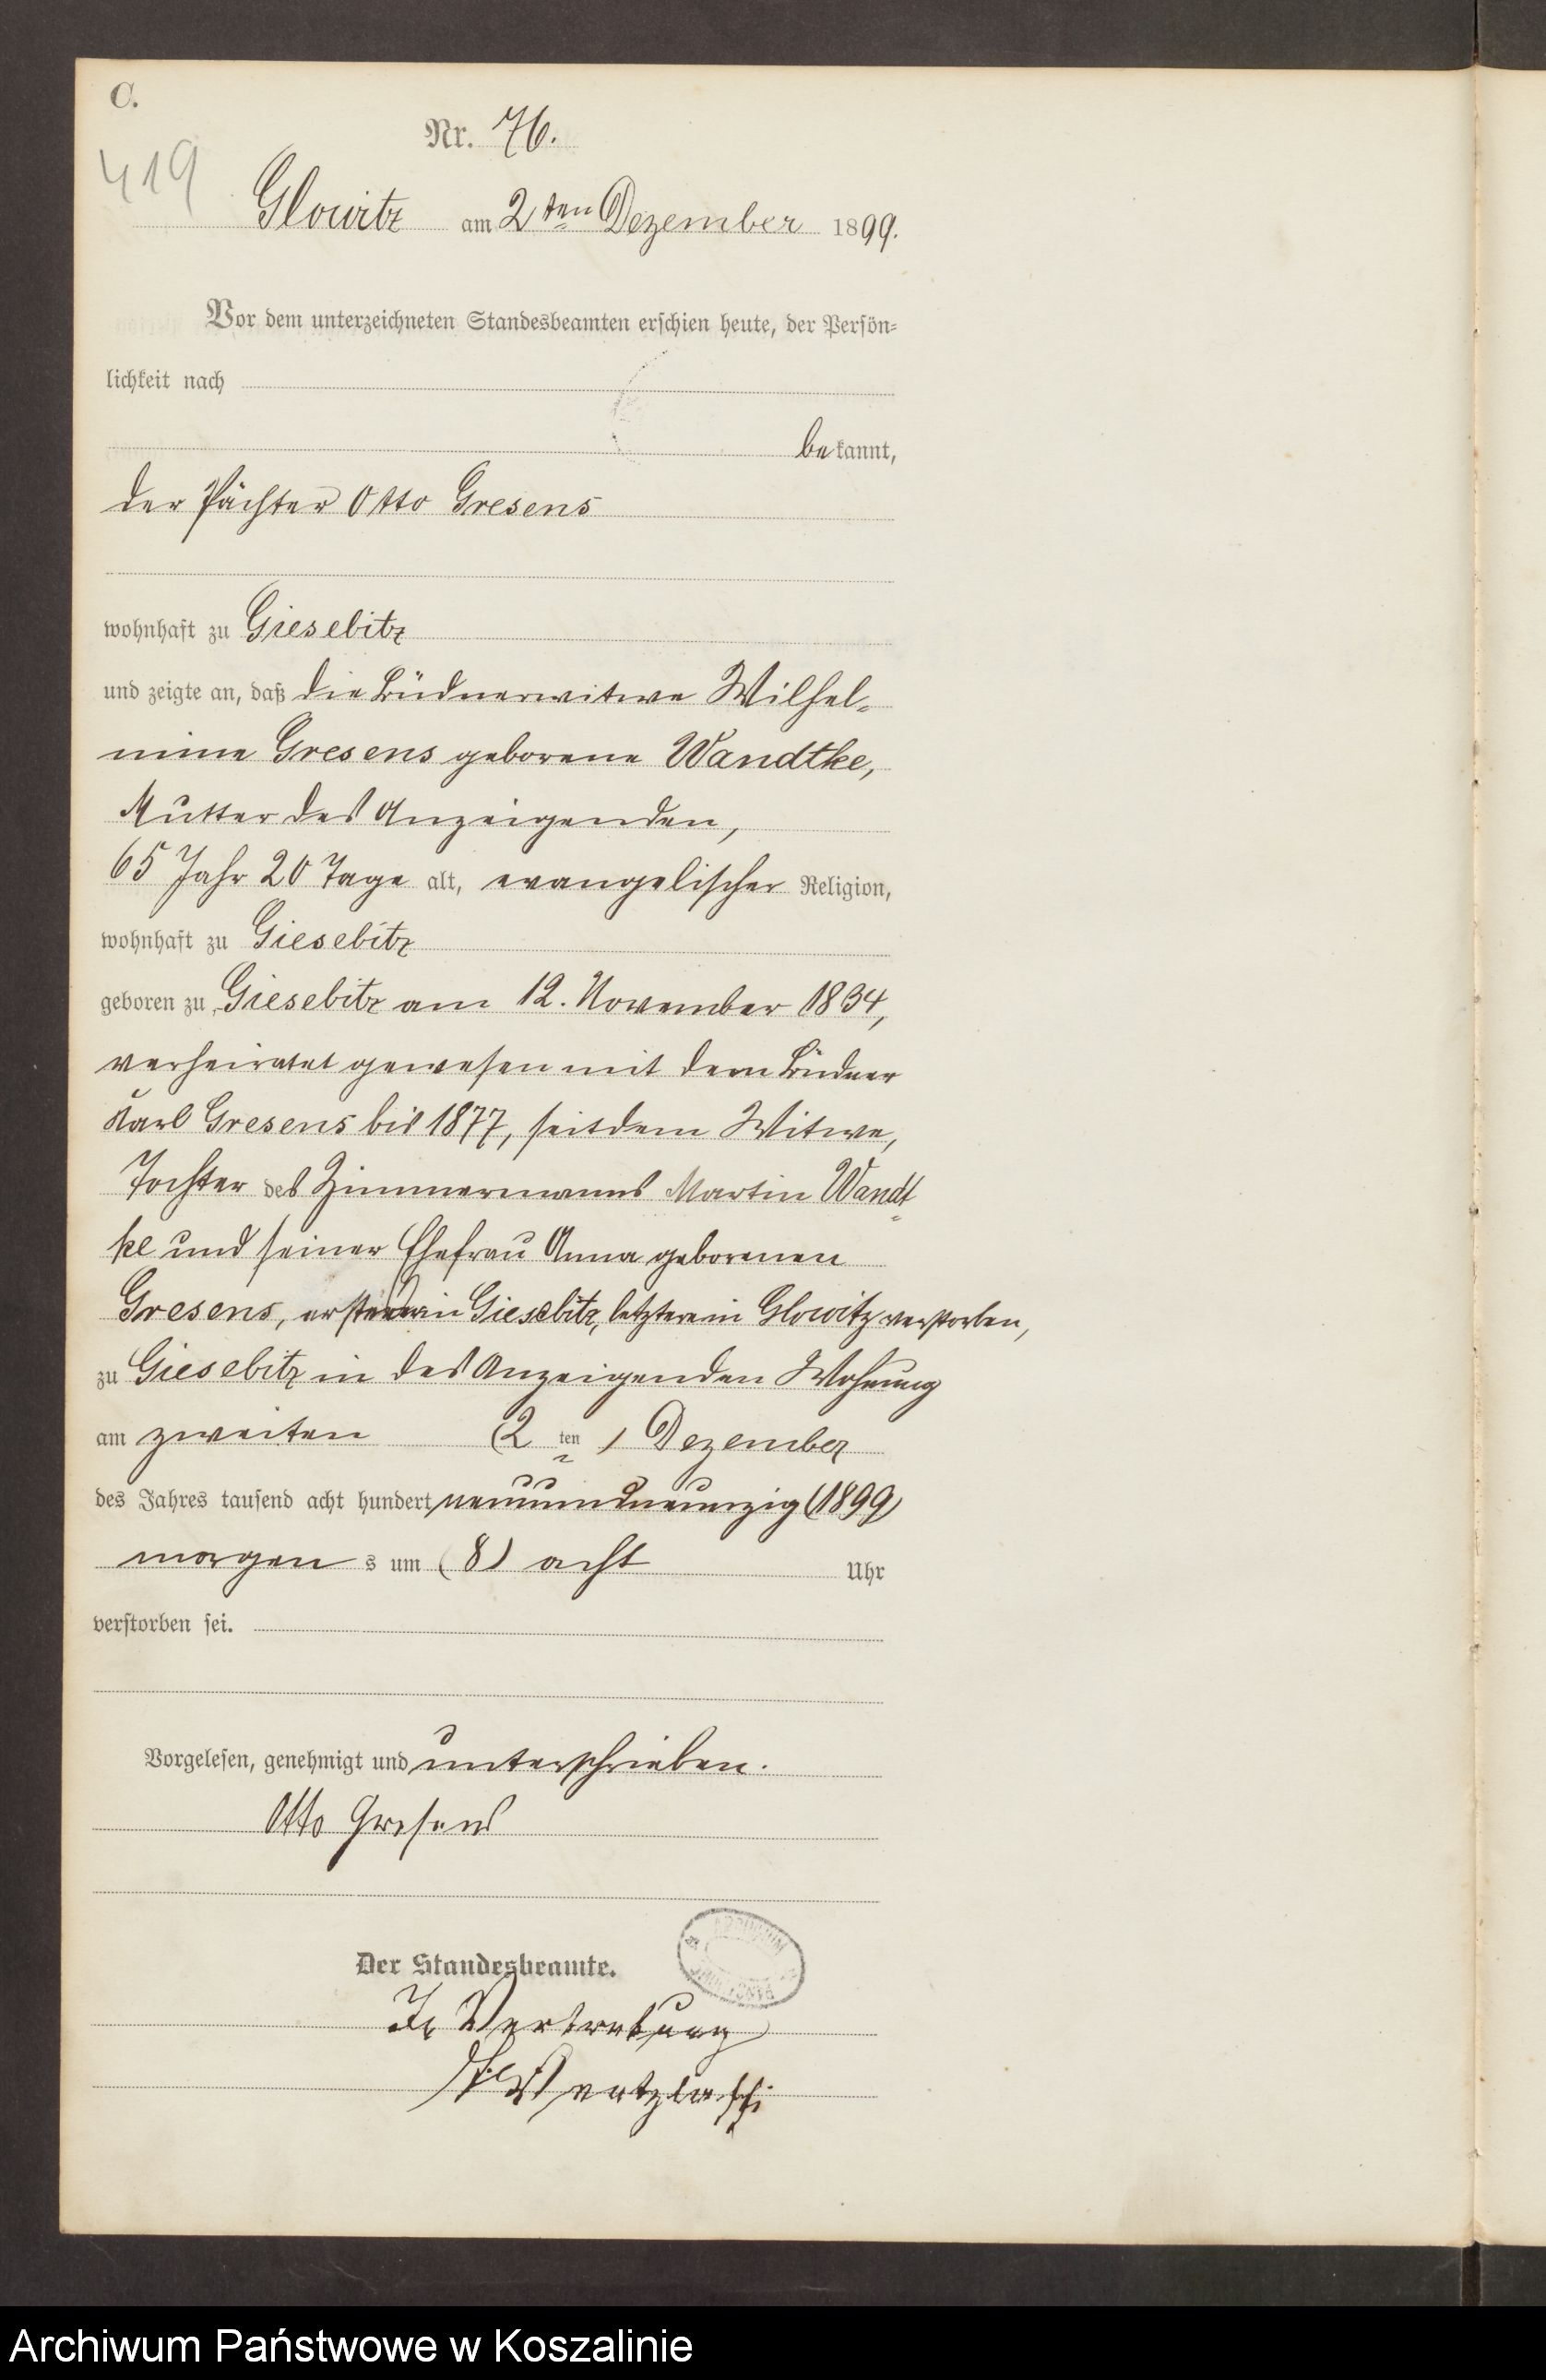 C.
Nr. 76.
419
Glowitz am 2ten Dezember 1899.
Vor dem unterzeichneten Standesbeamten erschien heute, der Persön-
lichkeit nach
bekannt,
der Pächter Otto Gresens
wohnhaft zu Giesebitz
und zeigte an, daß die Büdnerwitwe Wilhel-
mine Gresens geborene Wandtke,
Mutter des Anzeigenden,
65 Jahr 20 Tage alt, evangelischer Religion,
wohnhaft zu Giesebitz
geboren zu Giesebitz am 12. November 1834,
verheiratet gewesen mit dem Büdner
Karl Gresens bis 1877, seitdem Witwe,
Tochter des Zimmermanns Martin Wandt-
ke und seiner Ehefrau Anna geborenen
Gresens, ersterer in Giesebitz, letztere in Glowitz verstorben,
zu Giesebitz in des Anzeigenden Wohnung
am zweiten (2 ten) Dezember
des Jahres tausend acht hundert neunundneunzig (1899)
morgens um (8) acht Uhr
verstorben sei.
Vorgelesen, genehmigt und unterschrieben.
Otto Gresens
Der Standesbeamte.
In Vertretung
Archiwum Państwowe w Koszalinie